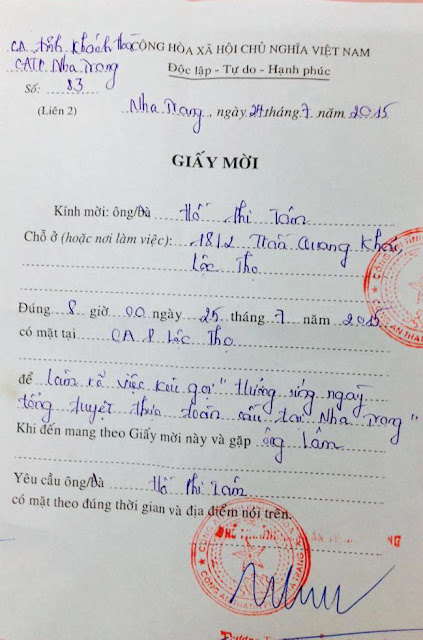 CA tỉnh Khánh Hòa CỘNG HÒA XÃ HỘI CHỦ NGHĨA VIỆT NAM
CATP. Nha Trang Độc lập - Tự do - Hạnh phúc
Số: 83
(Liên 2) Nha Trang, ngày 24 tháng 7 năm 2015
GIẤY MỜI
Kính mời: ông/bà Hồ Thị
Chỗ ở (hoặc nơi làm việc): 18/2 Trần Quang Khải,
Lộc Thọ
Đúng 8 giờ 00 ngày 25 tháng 7 năm 2015
có mặt tại CA P Lộc Thọ
để làm rõ việc kêu gọi "Hưởng ứng ngày
tổng tuyệt thực toàn cầu tại Nha Trang"
Khi đến mang theo Giấy mời này và gặp ông Lâm
Yêu cầu ông/bà Hồ Thị
có mặt theo đúng thời gian và địa điểm nói trên.